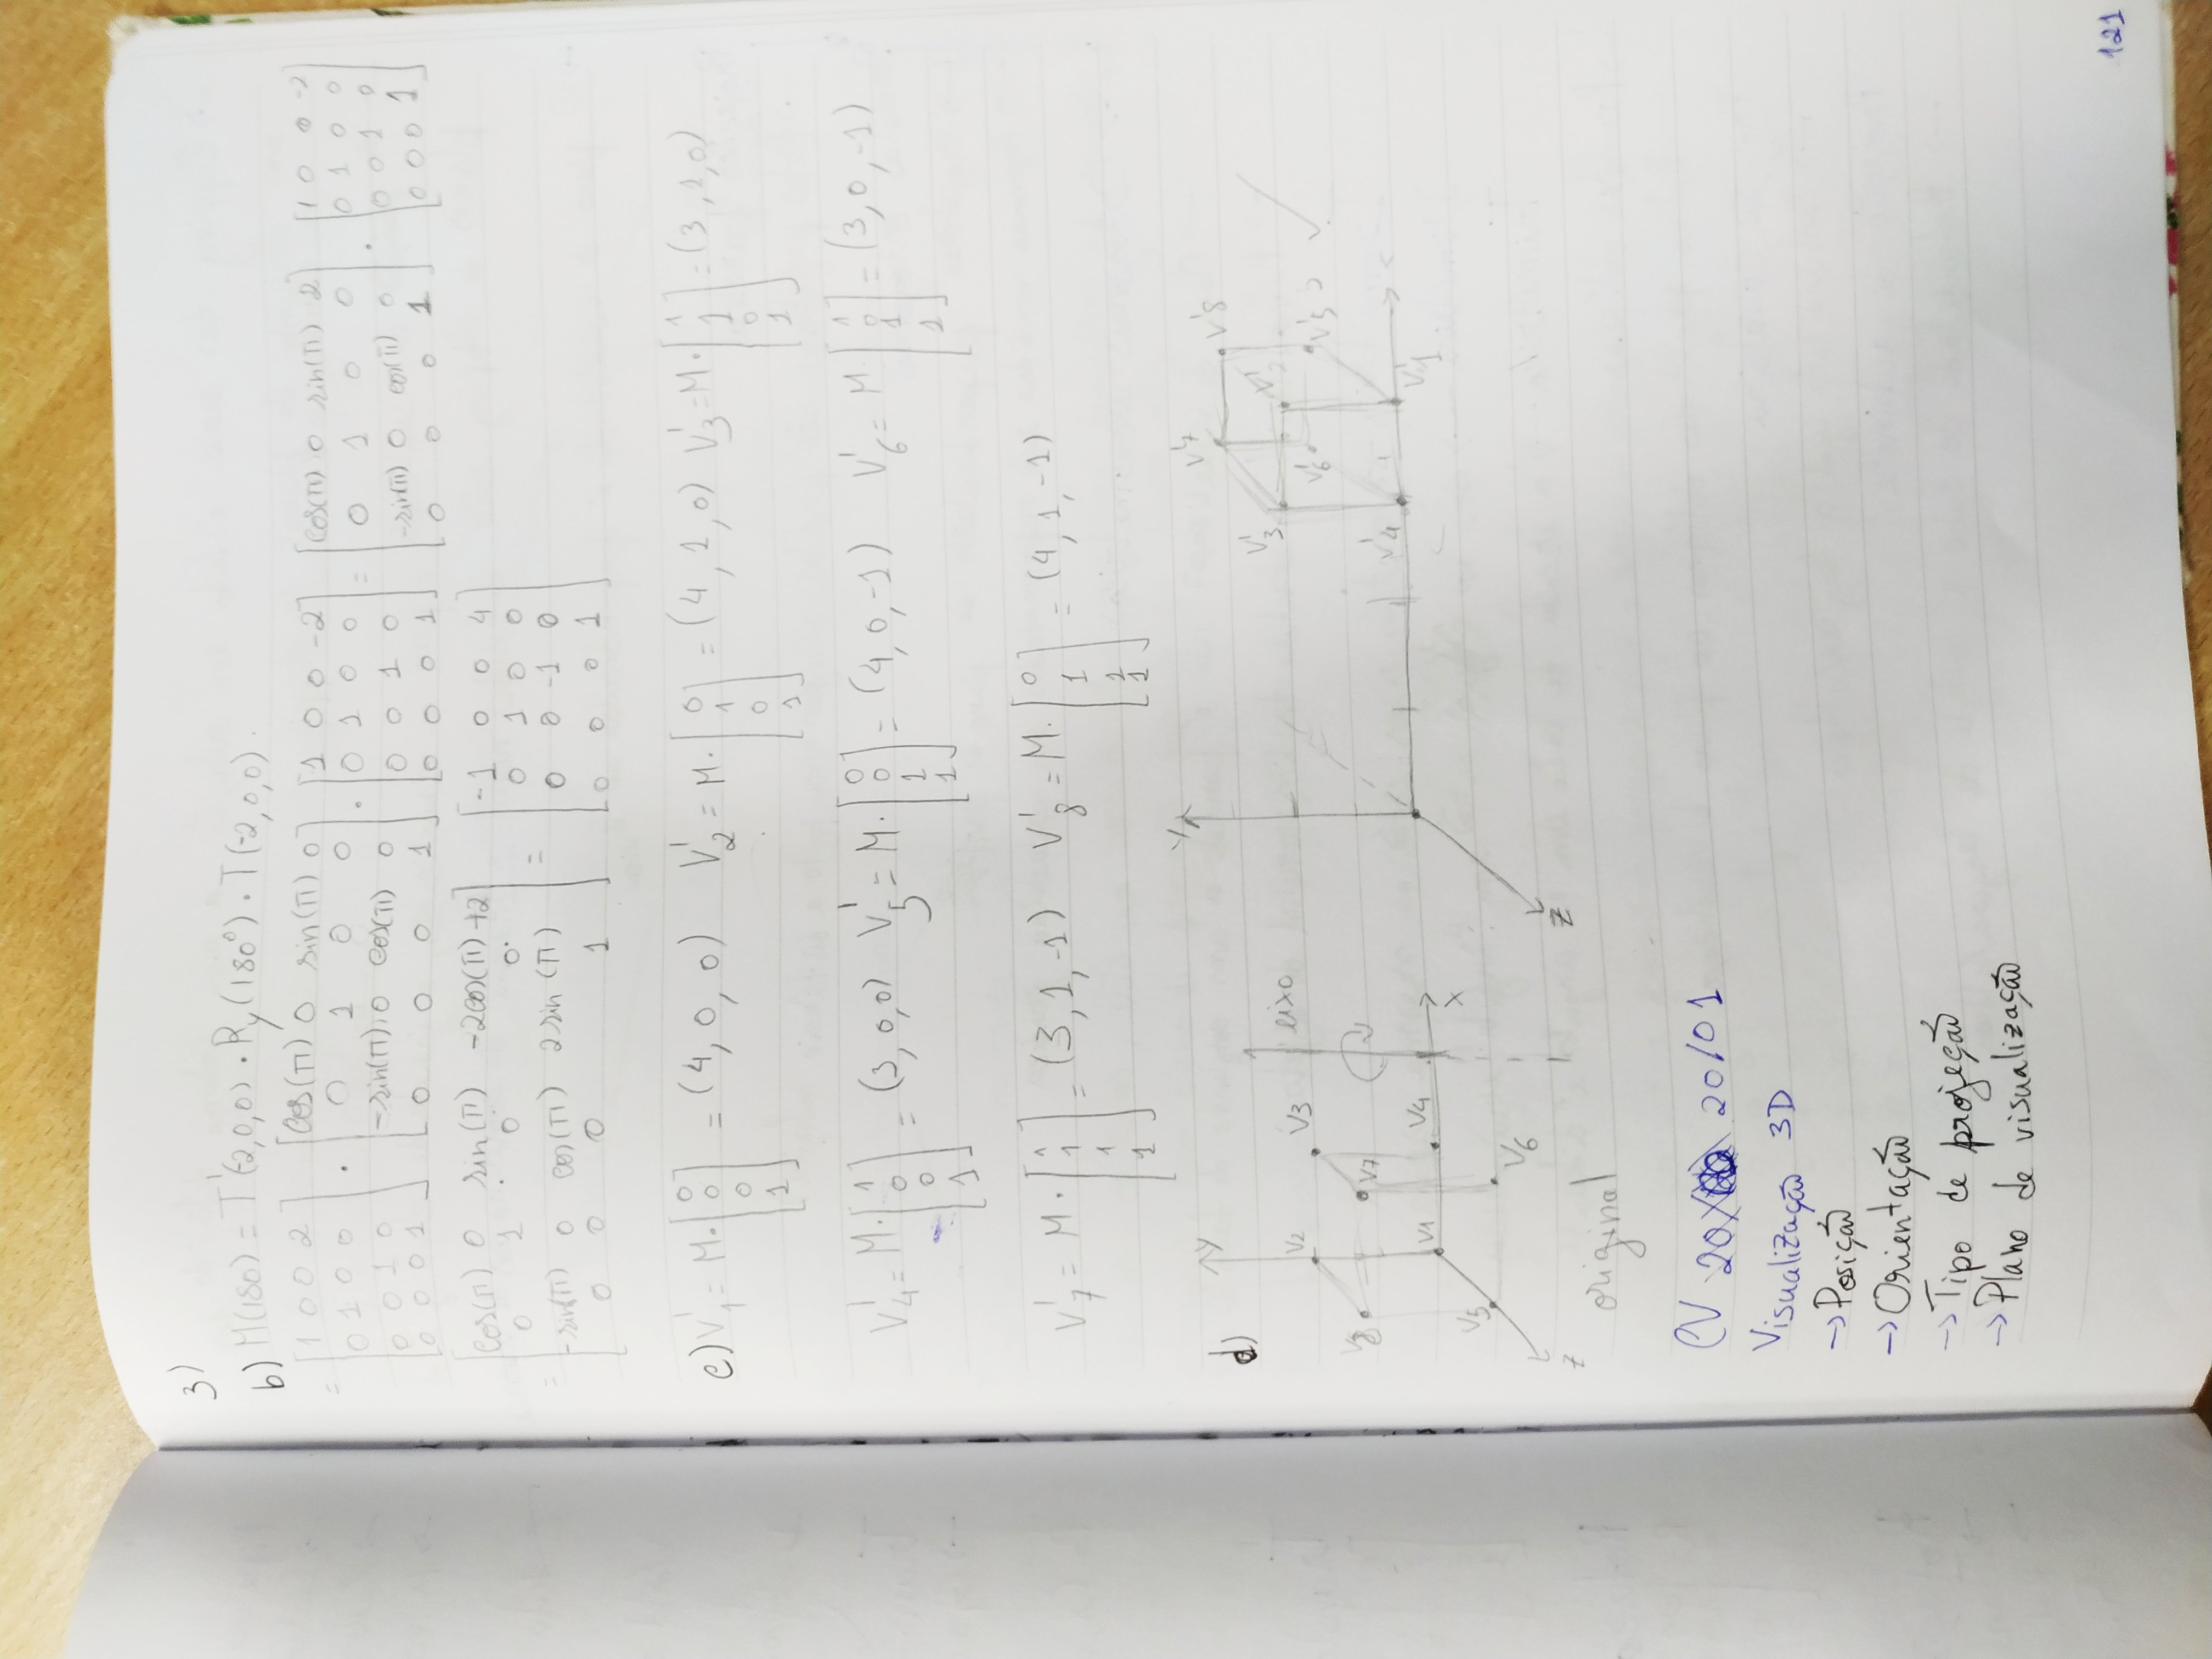 3)
b) M(180) = T'(-2,0,0) · Ry(180°) · T(-2,0,0).
= [1 0 0 2] · [cos(π) 0 sin(π) 0] · [1 0 0 -2] = [cos(π) 0 sin(π) 2] · [1 0 0 -2]
[0 1 0 0] [0 1 0 0] [0 1 0 0] [0 1 0 0] [0 1 0 0]
[0 0 1 0] [-sin(π) 0 cos(π) 0] [0 0 1 0] [-sin(π) 0 cos(π) 0] [0 0 1 0]
[0 0 0 1] [0 0 0 1] [0 0 0 1] [0 0 0 1] [0 0 0 1]
= [cos(π) 0 sin(π) -2cos(π)+2] = [-1 0 0 4]
[0 1 0 0] [0 1 0 0]
[-sin(π) 0 cos(π) 2sin(π)] [0 0 -1 0]
[0 0 0 1] [0 0 0 1]
c) V'1 = M·[0 0 0 1] = (4, 0, 0) V'2 = M·[0 1 0 1] = (4, 1, 0) V'3 = M·[1 1 0 1] = (3, 1, 0)
V'4 = M·[1 0 0 1] = (3, 0, 0) V'5 = M·[0 0 1 1] = (4, 0, -1) V'6 = M·[1 0 1 1] = (3, 0, -1)
V'7 = M·[1 1 1 1] = (3, 1, -1) V'8 = M·[0 1 1 1] = (4, 1, -1)
d)
y
V2
V3
eixo
V8
V7
V1
V4
X
V5
V6
Z
original
y
V'7
V'8
V'3
V'2
V'6
V'5
V'4
V'1
Z
CV 20/01
Visualização 3D
→ Posição
→ Orientação
→ Tipo de projeção
→ Plano de visualização
121